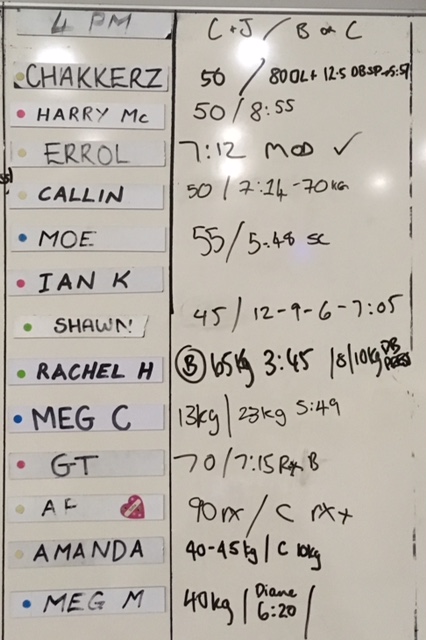 4 PM C+J / B or C
CHAKKERZ 50 / 80 DL + 12.5 DBSP 5:57
HARRY Mc 50 / 8:55
ERROL 7:12 MOD ✓
CALLIN 50 / 7:14 - 70kg
MOE 55 / 5.48 SC
IAN K
SHAWN 45 / 12-9-6-7:05
RACHEL H Ⓑ 65kg 3:45 /8/10kg DB PRESS
MEG C 13kg | 23kg 5:49
GT 70 / 7:15 Rx B
AF 90 rx / C rx+
AMANDA 40-45kg / C 10kg
MEG M 40kg / Diane 6:20 /